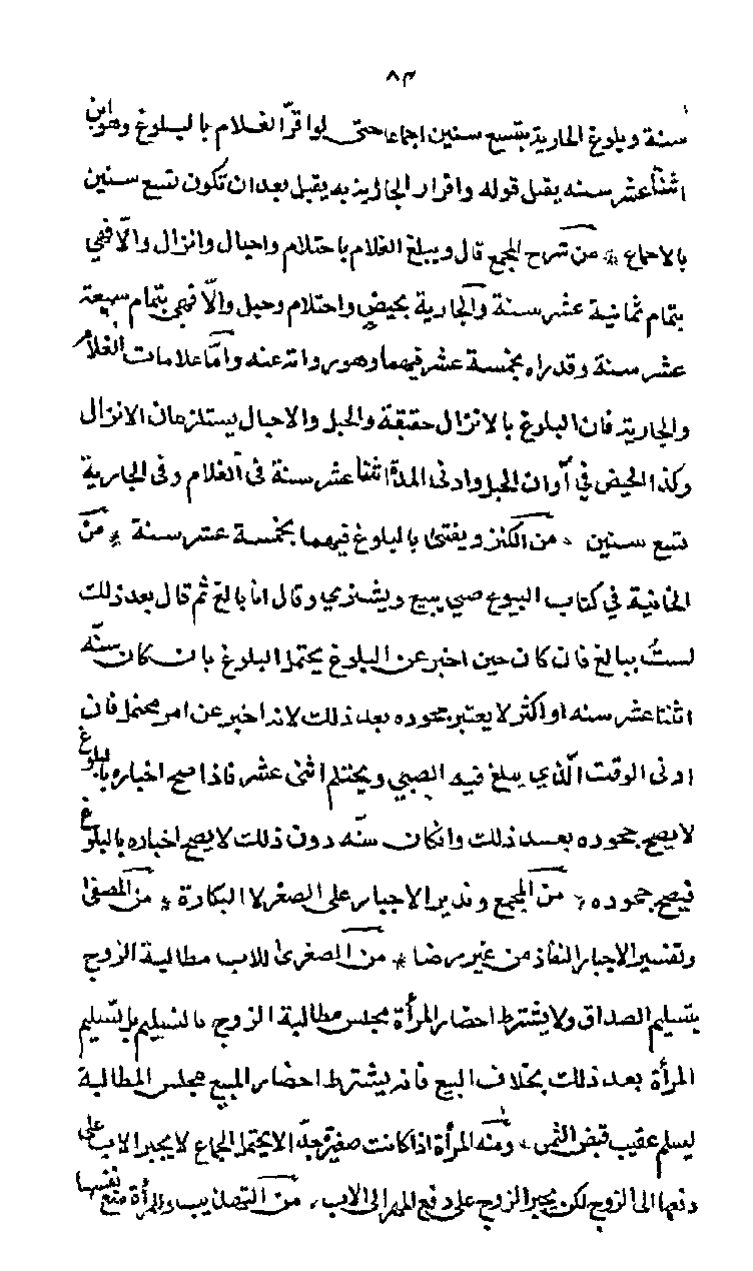 ٨٣
سنة وبلوغ الجارية بتسع سنين اجماعا حتى لو اقرّ الغلام بالبلوغ وهو ابن
اثنتا عشر سنه يقبل قوله واقرار الجارية به يقبل بعد ان تكون تسع سنين
بالاجماع * من شرح المجمع قال ويبلغ الغلام باحتلام واحبال وانزال والّا فهي
بتمام ثمانية عشر سنة والجارية بحيض واحتلام وحبل والّا فهي بتمام سبعة
عشر سنة وقدراه بخمسة عشر فيهما وهو رواية عنه وامّا علامات الغلام
والجارية فان البلوغ بالانزال حقيقة والحبل والاحبال يستلزمان الانزال
وكذا الحيض في أوان الحبل وادنى المدة اثنتا عشر سنة في الغلام وفي الجارية
تسع سنين * من الكنز ويفتى بالبلوغ فيهما بخمسة عشر سنة * من
الخانية في كتاب البيوع صبي يبيع ويشتري وقال انا بالغ ثم قال بعد ذلك
لستُ ببالغ فان كان حين اخبر عن البلوغ يحتمل البلوغ بان كان سنّه
اثنتا عشر سنه او اكثر لا يعتبر جحوده بعد ذلك لانه اخبر عن امر محتمل فان
ادنى الوقت الّذي يبلغ فيه الصبي ويحتلم اثنى عشر فاذا صح اخباره بالبلوغ
لا يصح جحوده بعد ذلك وانكان سنّه دون ذلك لا يصح اخباره بالبلوغ
فيصح جحوده * من المجمع وندير الاجبار على الصغر لا البكارة * من المصفى
وتفسير الاجبار النفاذ من غير رضا * من الصغرى للاب مطالبة الزوج
بتسليم الصداق ولا يشترط احضار المرأة مجلس مطالبة الزوج بالتسليم بل تسليم
المرأة بعد ذلك بخلاف البيع فانه يشترط احضار المبيع مجلس المطالبة
ليسلم عقيب قبض الثمن * ومنه المرأة اذا كانت صغيرة جدّا لا يحتمل الجماع لا يجبر الاب على
دفعها الى الزوج لكن يجبر الزوج على دفع المهر الى الاب * من التهذيب وللمرأة منع نفسها